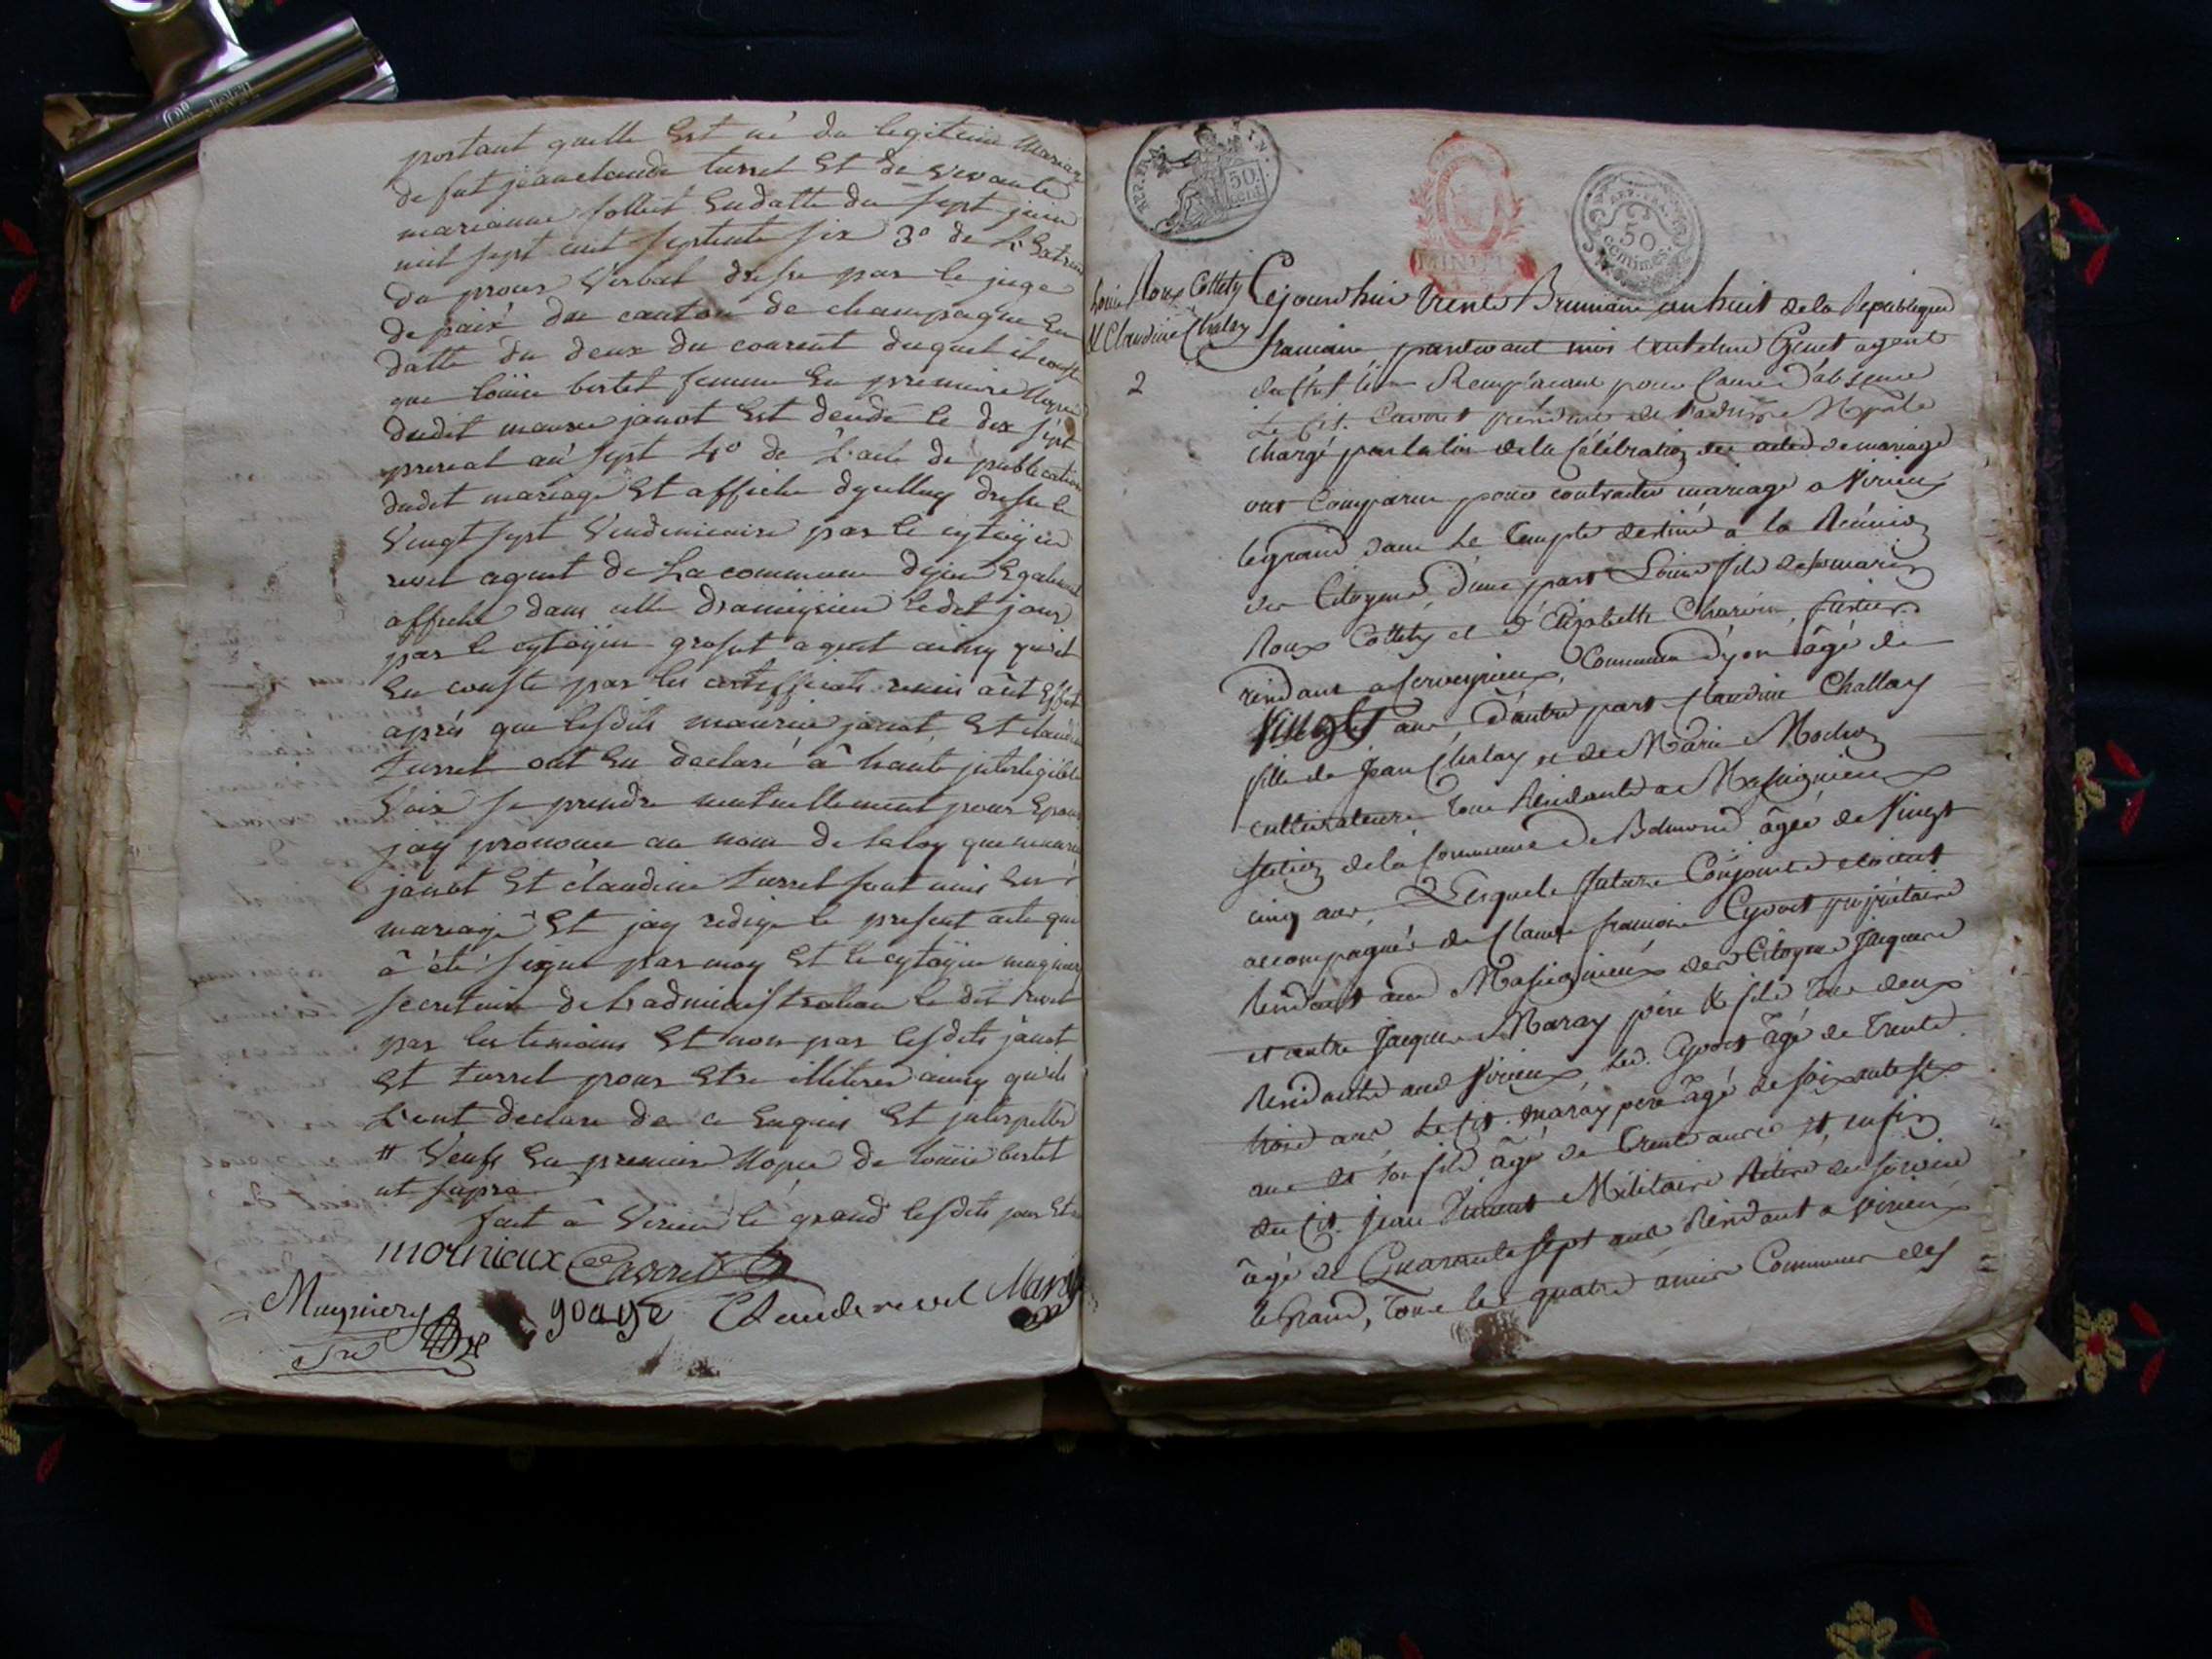 portant quelle Est né du legitime Mariag
de fut jean claude turrel Et de vivante
marianne follict Endatte du sept juin
mil sept cent septente six 3° de L'Extrait
du proces verbal dressé par le juge
de paix du canton de champagne En
datte du deux du courent duquel il conste
que louise bertet femme En premiere Nopce
dudit maurice janot Est decedé le dix sept
prereal an sept 4° de L'acte de publication
dudit mariage Et affiche dyelluy dressé le
vingt sept vendemieaire par le cytoyen
revel agent de La commune dijeon Egalement
affiché dans celle drameysieu ledit jour
par le cytoyen grosset agent ainsy qu'il
En conste par les certifficats remis à cet Effet
après que lesdits maurice janot Et claudine
turrel ont Eu declaré â haute jnteligible
voix se prendre mutuellement pour Epoux
jay prononcé au nom de la loy que maurice
janot Et claudine turrel sont unis En
mariage Et jay redigé le present acte qui
â été signé par moy Et le cytoyen magnier
secretaire de L'administration le dit revel
par les temoins Et non par lesdits janot
Et turrel pour Etre illiterés ainsy qu'ils
L'ont declaré de ce Enquis Et jnterpellés
# veuf En premiere Nopce de louise bertet
ut supra
fait â virieu le grand lesdits jour Et
mornieux Cavoret
Magniery gouge Claude revel Maray
Sre
REP. FRA. 50. cent.
MINUTE
REP. FRA. 50 centimes
Louis Roux Cottety
& Claudine Chalay
2
Cejourdhui trente Brumaire an huit de la Republique
francaise pardevant moi Anthelme Genet agent
du chef lieu Remplacant pour Cause d'absence
Le cit. Cavoret président de l'administ. Mpale
chargé par la loi de la Célébration des actes de mariage
ont Comparu pour contracter mariage a Virieu
legrand dans Le Temple destiné a la Réunion
des Citoyens, d'une part Louis fils de
Roux Cottety et d'Elizabeth Charvin,
résidant a Serveyrieux, Commune d'yon âgé de
Vingt ans, d'autre part Claudine Challay
fille de Jean Chalay et de Marie Mochon
cultivateurs tous Résidants a Massignieux
section de la Commune de Belmond âgée de Vingt
cinq ans, Lesquels futurs Conjoints etoient
accompagnés de Claude francois Cyvoct propriétaire
Résidant aud. Massignieux des Citoyens Jacques
et autre Jacques Maray père & fils tous deux
Résidants aud Virieux led. Cyvoct âgé de trente
trois ans, Le cit. Maray père âgé de soixante six
ans et son fils âgé de trente ans et, enfin
du cit. Jean Vincent Militaire Retiré du service
âgé de Quarante sept ans Résidant a Virieux
le Grand, tous les quatre amis Communs des